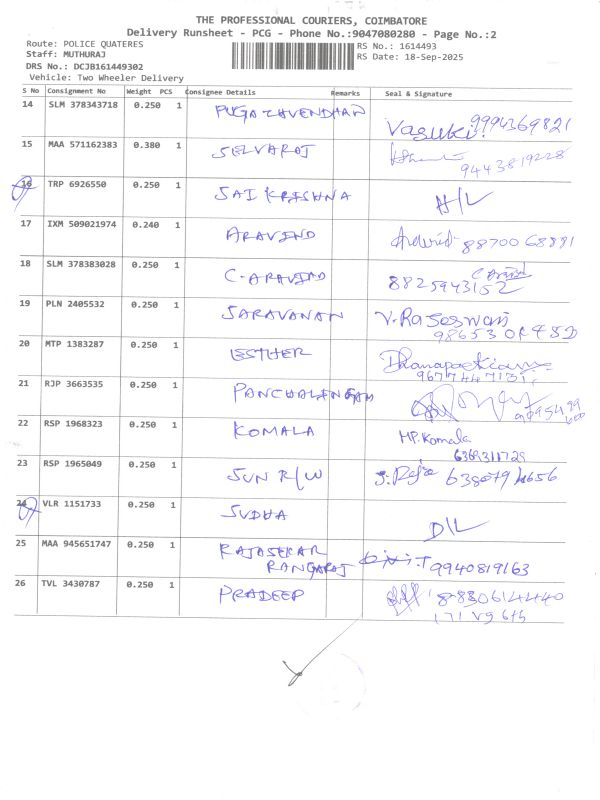 THE PROFESSIONAL COURIERS, COIMBATORE
Delivery Runsheet - PCG - Phone No.:9047080280 - Page No.:2
Route: POLICE QUATERES RS No.: 1614493
Staff: MUTHURAJ RS Date: 18-Sep-2025
DRS No.: DCJB161449302
Vehicle: Two Wheeler Delivery
S No Consignment No Weight PCS Consignee Details Remarks Seal & Signature
14 SLM 378343718 0.250 1 PUGAZHAVENDHAN Vasuki. 9994369821
15 MAA 571162383 0.380 1 SELVARAJ 9443819228
16 TRP 6926550 0.250 1 SAI KRISHNA H/L
17 IXM 509021974 0.240 1 ARAVIND Aravind 88700 68881
18 SLM 378383028 0.250 1 C. ARAVIND C Aravind
8825943152
19 PLN 2405532 0.250 1 SARAVANAN V. Raseswari
20 MTP 1383287 0.250 1 ESTHER
21 RJP 3663535 0.250 1 PANCHALINGAM
22 RSP 1968323 0.250 1 KOMALA MP. Komala
23 RSP 1965049 0.250 1 SUN R/W S. Raja 638079 4656
24 VLR 1151733 0.250 1 SUDHA D/L
25 MAA 945651747 0.250 1 RAJASEKAR
RANGARAJ 9940819163
26 TVL 3430787 0.250 1 PRADEEP 8830614440